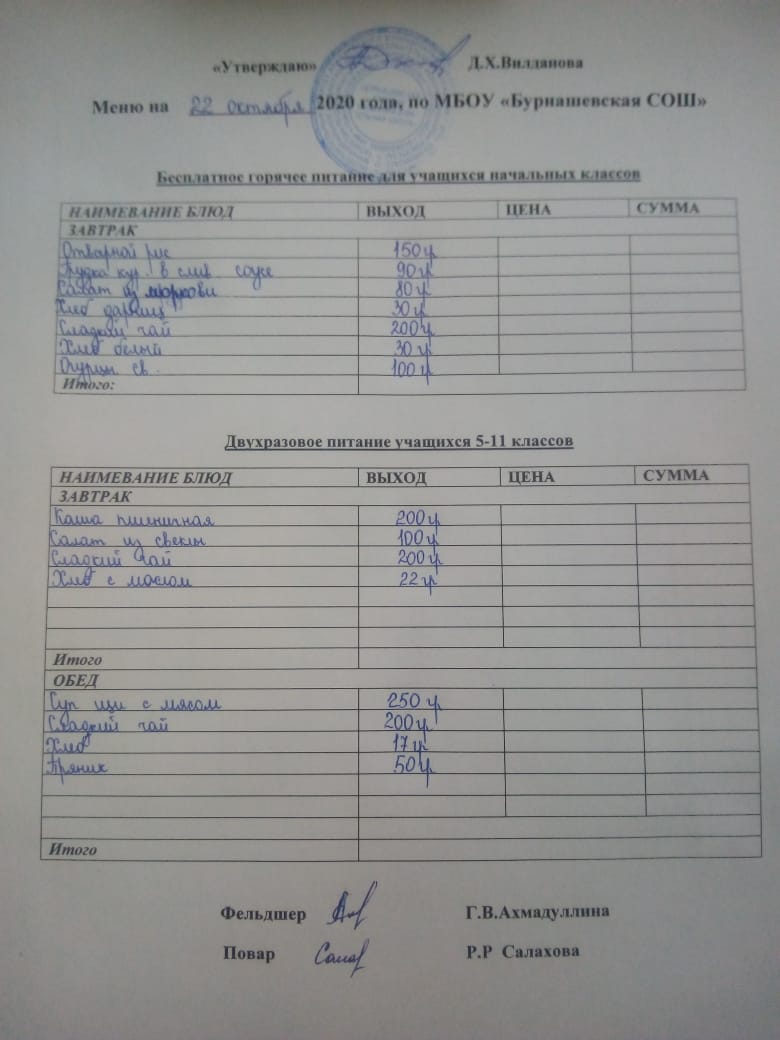 «Утверждаю» Д.Х.Вилданова
Меню на 22 октября 2020 года, по МБОУ «Бурнашевская СОШ»
Бесплатное горячее питание для учащихся начальных классов
НАИМЕВАНИЕ БЛЮД ВЫХОД ЦЕНА СУММА
ЗАВТРАК
Отварной рис 150 г
Грудка кур. в слив соусе 90 г
Салат из моркови 80 г
Хлеб дарниц 30 г
Сладкий чай 200 г
Хлеб белый 30 г
Огурцы св. 100 г
Итого:
Двухразовое питание учащихся 5-11 классов
НАИМЕВАНИЕ БЛЮД ВЫХОД ЦЕНА СУММА
ЗАВТРАК
Каша пшеничная 200 г
Салат из свеклы 100 г
Сладкий чай 200 г
Хлеб с маслом 22 г
Итого
ОБЕД
Суп щи с мясом 250 г
Сладкий чай 200 г
Хлеб 17 г
Пряник 50 г
Итого
Фельдшер Г.В.Ахмадуллина
Повар Р.Р Салахова